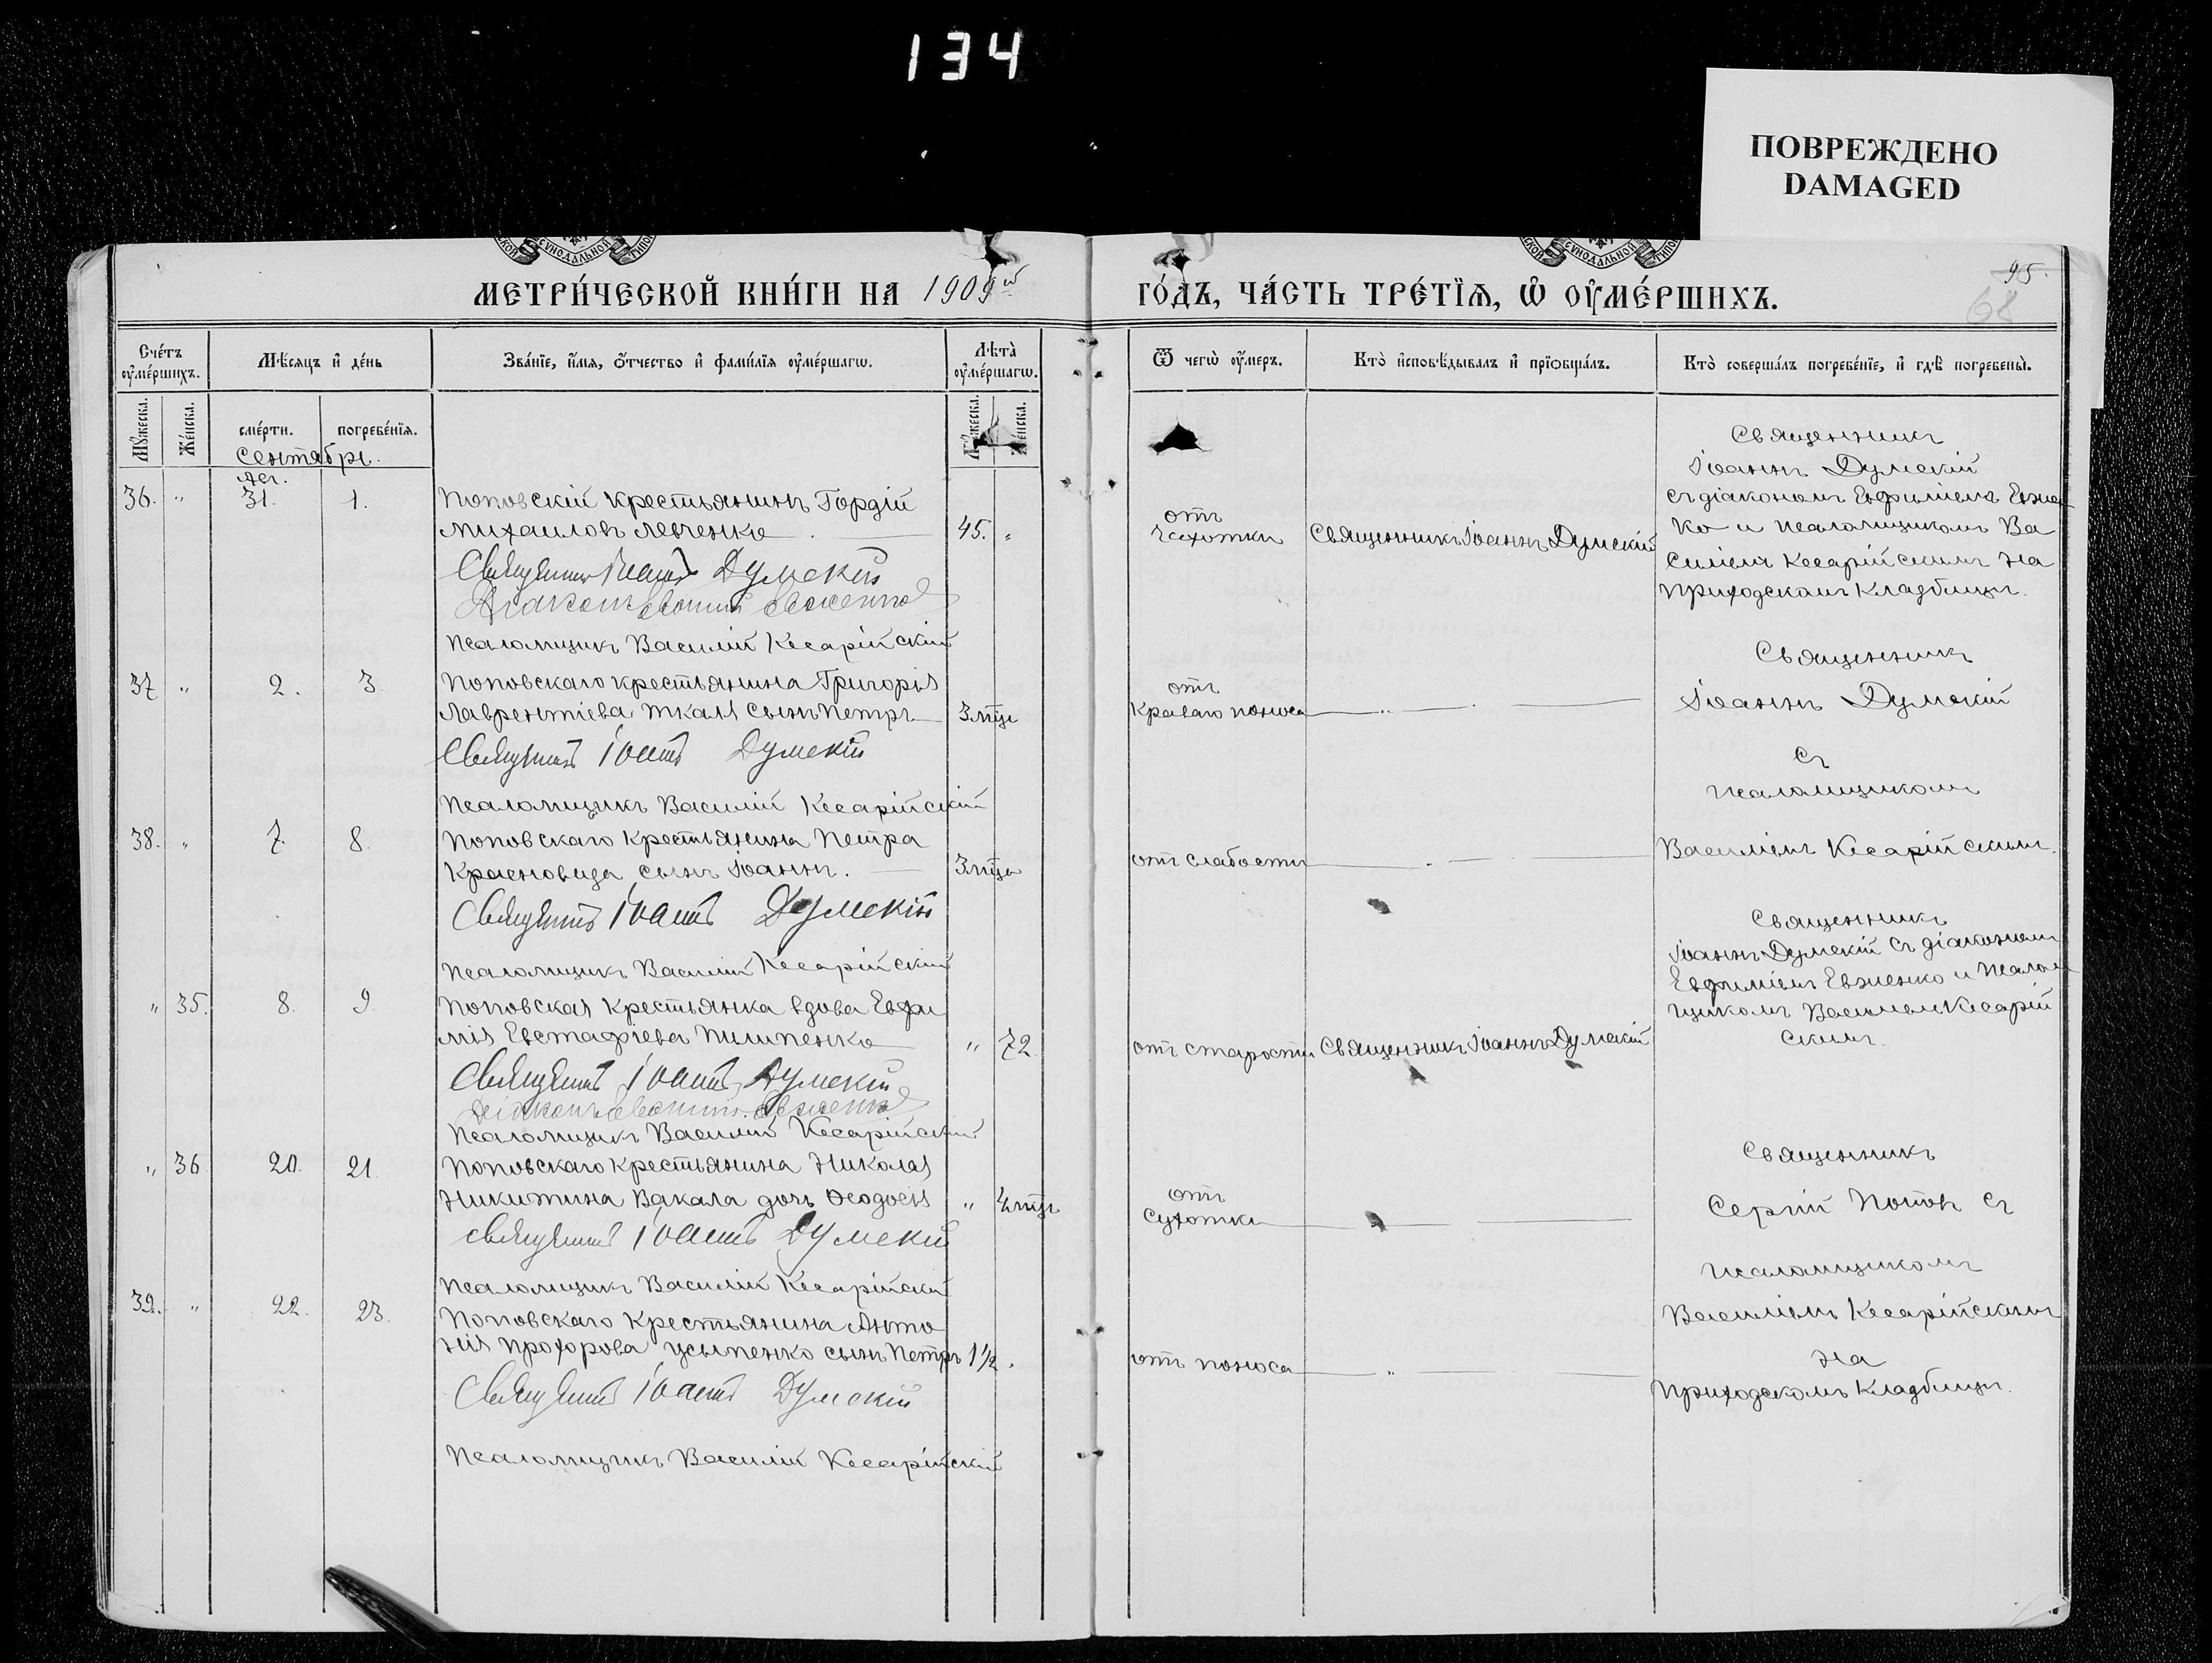 134
ПОВРЕЖДЕНО
DAMAGED
МЕТРИ́ЧЕСКОЙ КНИ́ГИ НА 1909й
ГО́ДЪ, ЧА́СТЬ ТРЕ́ТЇЯ, Ѿ ОУМЕ́РШИХЪ.
95.
68
Сче́тъ оумершихъ.
Мѣсяцъ и де́нь
Зва́нїе, и́мя, о́тчество и фами́лїя оуме́ршагѡ.
Лѣта̀ оуме́ршагѡ.
Ѿ чегѡ̀ оу́меръ.
Кто̀ исповѣ́дывалъ и прїѻбща́лъ.
Кто̀ соверша́лъ погребе́нїе, и гдѣ̀ погребены̀.
Му́жеска.
Же́нска.
сме́рти.
погребе́нїя.
Му́жеска.
Же́нска.
Сентябрь.
Авг.
36. " 31. 1. Поповскій крестьянинъ Гордій
Михаиловъ Левченко 45. "
Священникъ Іоаннъ Думскій
Діаконъ Евфимій Евженко
Псаломщикъ Василій Кесарійскій
отъ
чахотки
Священникъ Іоаннъ Думскій
Священникъ
Іоаннъ Думскій
съ діакономъ Евфиміемъ Евжен
ко и псаломщикомъ Ва
силіемъ Кесарійскимъ на
приходскомъ кладбищѣ.
37 " 2. 3 Поповскаго крестьянина Григорія
Лаврентіева Ткаля сынъ Петръ 3 мцъ
Священникъ Іоаннъ Думскій
Псаломщикъ Василій Кесарійскій
отъ
кроваго поноса
Священникъ
Іоаннъ Думскій
съ
псаломщикомъ
38. " 7. 8. Поповскаго крестьянина Петра
Красновида сынъ Іоаннъ. 3 мца
Священникъ Іоаннъ Думскій
Псаломщикъ Василій Кесарійскій
отъ слабости
Василіемъ Кесарійскимъ.
" 35. 8. 9. Поповская крестьянка вдова Евфи
мія Евстафіева Пилипенко " 72
Священникъ Іоаннъ Думскій
Діаконъ Евфимій Евженко
Псаломщикъ Василій Кесарійскій
отъ старости
Священникъ Іоаннъ Думскій
Священникъ
Іоаннъ Думскій съ діакономъ
Евфиміемъ Евженко и псалом
щикомъ Василіемъ Кесарій
скимъ.
" 36 20. 21. Поповскаго крестьянина Николая
Никитина Вакала дочь Ѳеодосія " 4 мцъ
Священникъ Іоаннъ Думскій
Псаломщикъ Василій Кесарійскій
отъ
сухотки
Священникъ
Сергій Поповъ съ
псаломщикомъ
39. " 22. 23. Поповскаго крестьянина Анто
нія Прохорова Усыпенко сынъ Петръ 1½.
Священникъ Іоаннъ Думскій
Псаломщикъ Василій Кесарійскій
отъ поноса
Василіемъ Кесарійскимъ
на
приходскомъ кладбищѣ.